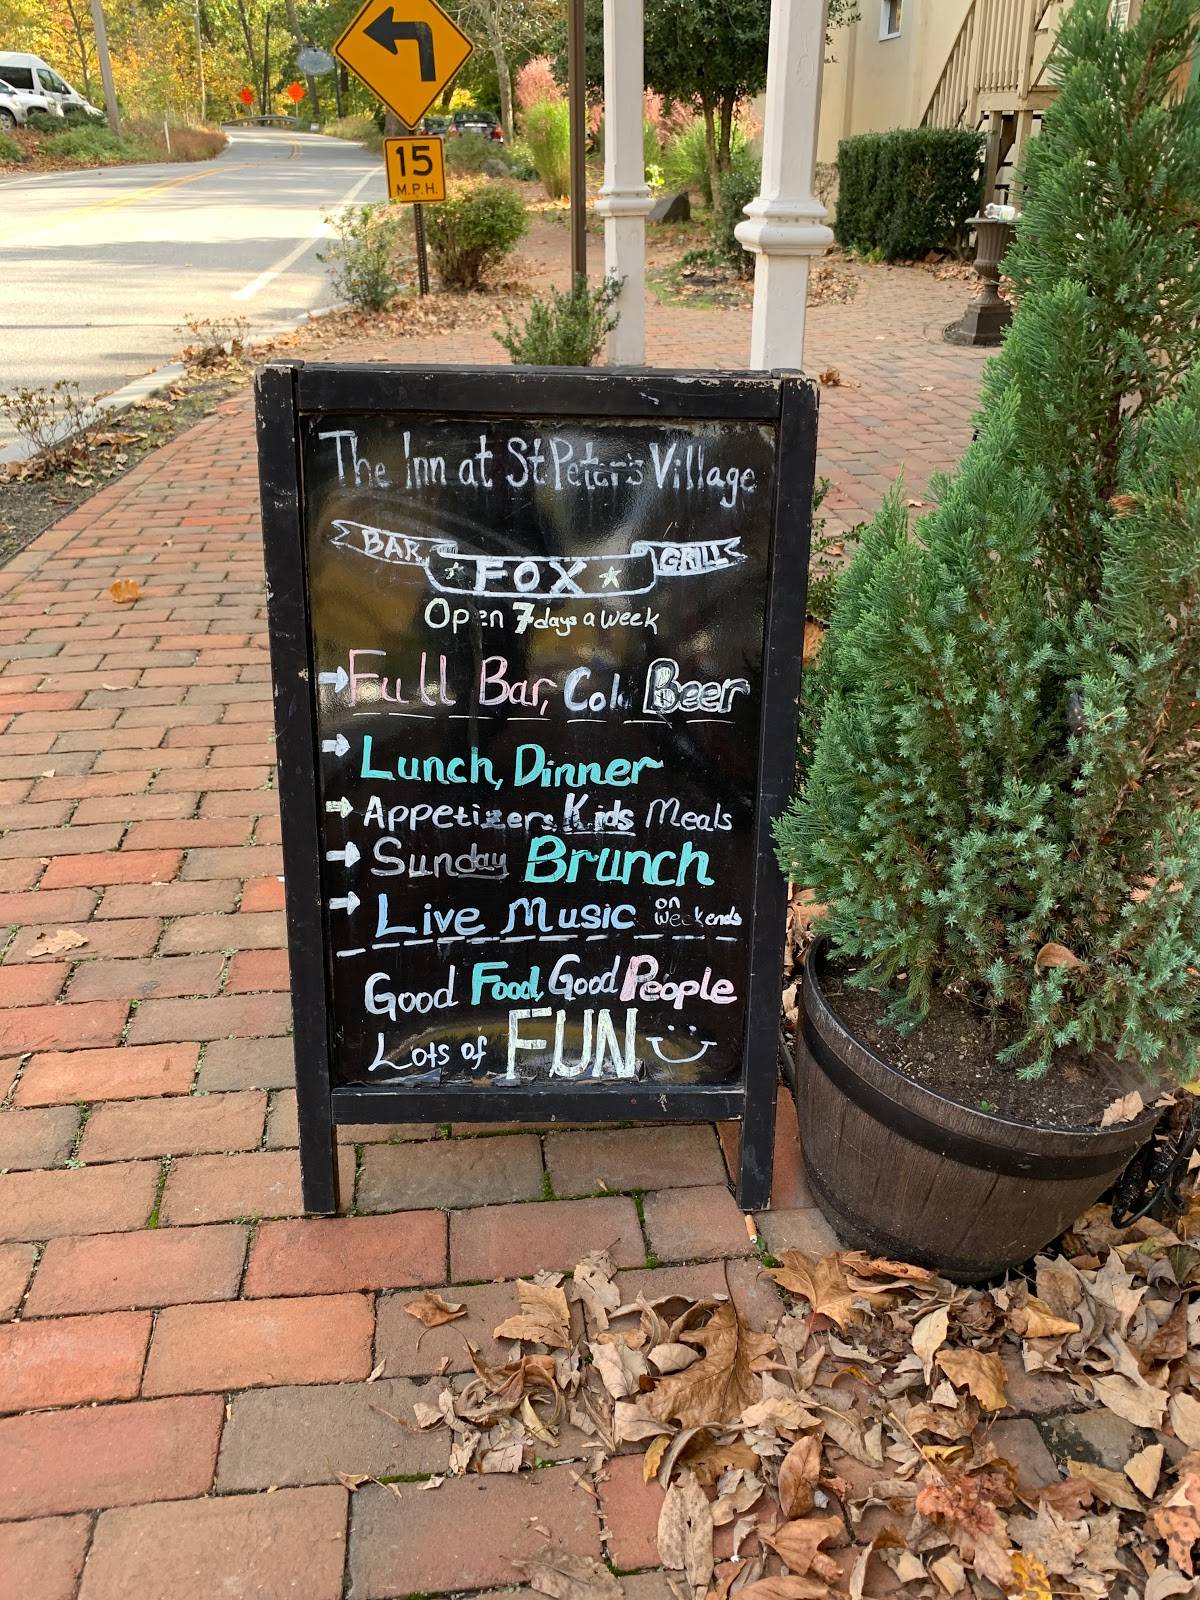 15
M.P.H.
The Inn at St Peter's Village
BAR FOX GRILL
Open 7 days a week
Full Bar, Col Beer
Lunch, Dinner
Appetizers Kids Meals
Sunday Brunch
Live Music on weekends
Good Food, Good People
Lots of FUN